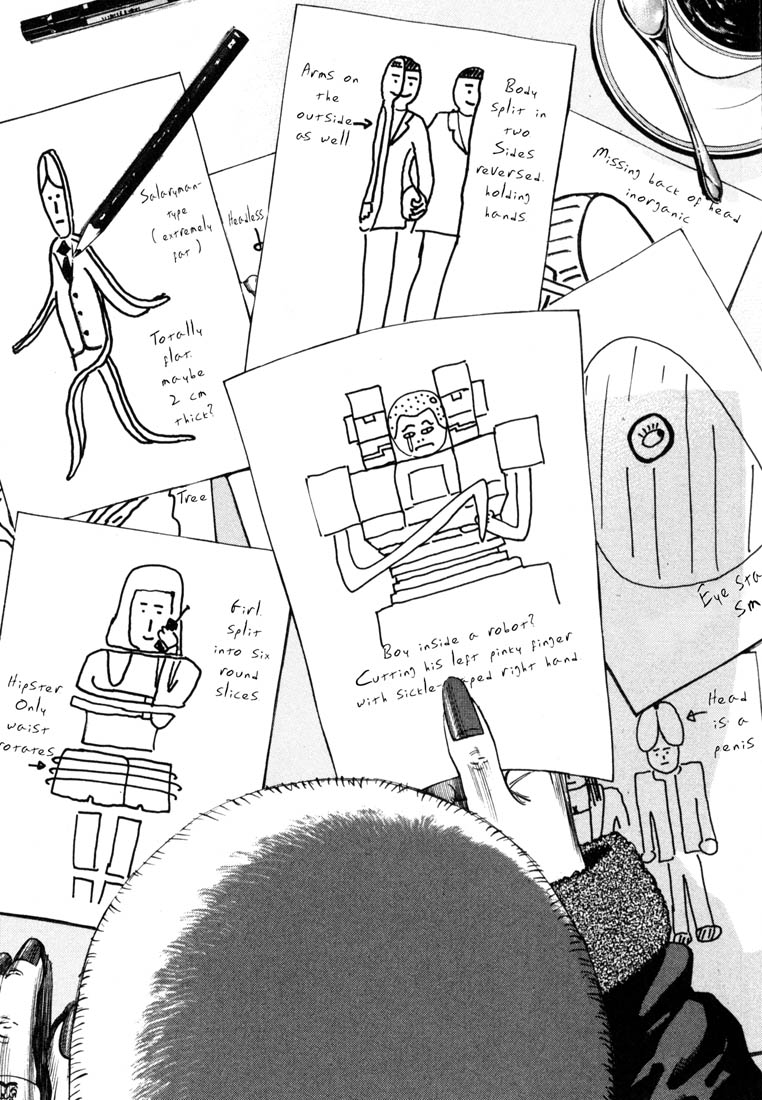 Arms on
the
outside
as well
Body
split in
two
Sides
reversed.
holding
hands
Missing back of head
inorganic
Salaryman-
type
(extremely
far)
Headless
Totally
flat.
maybe
2 cm
thick?
Tree
Eye
Sm
Girl
split
into six
round
slices
Hipster
Only
waist
rotates
Boy inside a robot?
Cutting his left pinky finger
with sickle-
aped right hand
Head
is a
penis